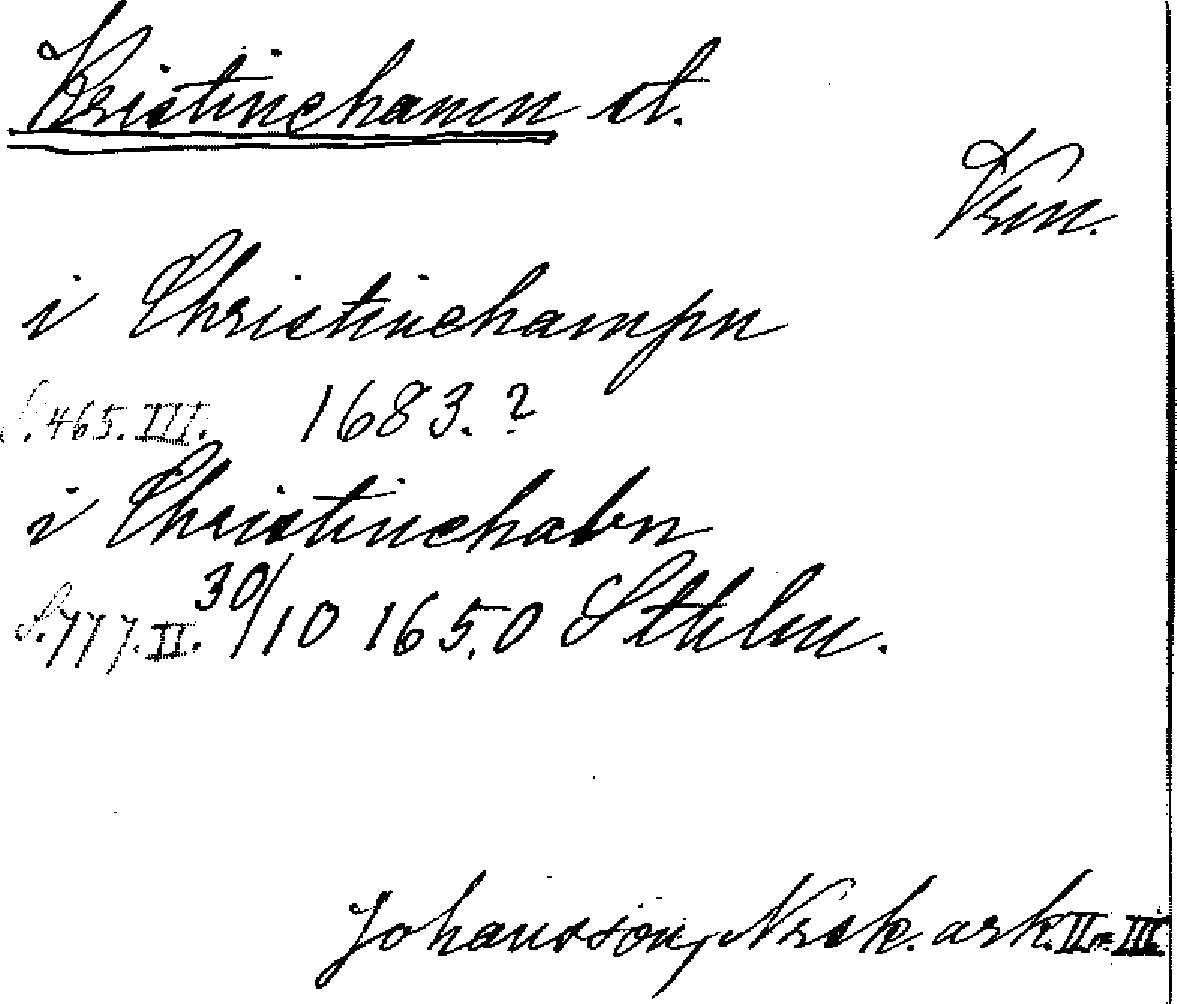 Kristinehamn st.
Vrm.
i Christinehampn
S. 465. III. 1683. ?
i Christinehabn
S. 777. II. 30/10 1650 Sthlm.
Johansson, Norsk. ark. II o. III